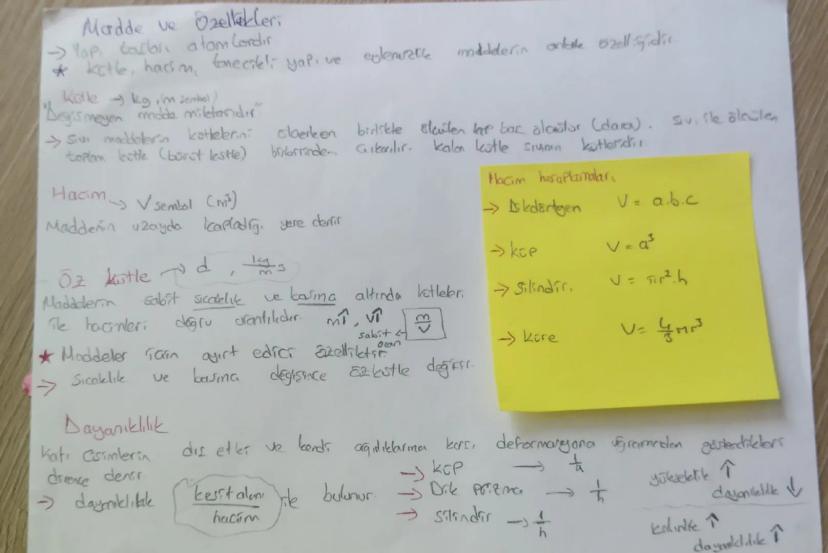 Madde ve Özellikleri
→ Yapı taşları atomlardır
★ Kütle, hacim, tanecikli yapı ve eylemsizlik maddelerin ortak özelliğidir.
Kütle → kg, (m sembol)
"Değişmeyen madde miktarıdır"
→ Sıvı maddelerin kütlelerini ölçerken birlikte ölçülen kap boş ölçülür (dara). Sıvı ile ölçülen
toplam kütle (bürüt kütle) birbirinden çıkarılır. Kalan kütle sıvının kütlesidir.
Hacim → V sembol (m³)
Maddenin uzayda kapladığı yere denir
Öz kütle → d, kg/m³
Maddelerin sabit sıcaklık ve basınç altında kütleleri
ile hacimleri doğru orantılıdır m↑, V↑ m/V
sabit olan
★ Maddeler için ayırt edici özelliktir
→ Sıcaklık ve basınç değişince özkütle değişir.
Hacim hesaplamaları
→ Dikdörtgen V = a.b.c
→ küp V = a³
→ Silindir. V = πr².h
→ küre V = 4/3 πr³
Dayanıklılık
Katı cisimlerin dış etki ve kendi ağırlıklarına karşı deformasyona uğramadan gösterdikleri
dirence denir
→ dayanıklılık kesit alanı/hacim ile bulunur
→ küp → 1/a
→ Dik prizma → 1/h
→ silindir → 1/h
yükseklik ↑
dayanıklılık ↓
kalınlık ↑
dayanıklılık ↑